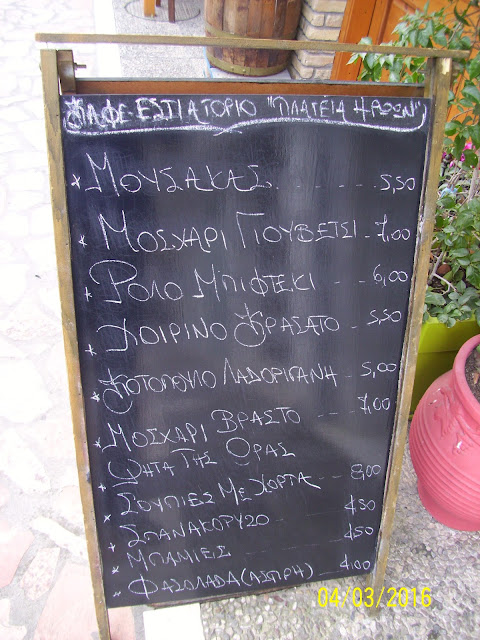 ΚΑΦΕ ΕΣΤΙΑΤΟΡΙΟ "ΠΛΑΤΕΙΑ ΗΡΩΩΝ"
* ΜΟΥΣΑΚΑΣ - - - - - - - 5,50
* ΜΟΣΧΑΡΙ ΓΙΟΥΒΕΤΣΙ - 7,00
* ΡΟΛΟ ΜΠΙΦΤΕΚΙ - - 6,00
* ΧΟΙΡΙΝΟ ΚΡΑΣΑΤΟ - - 5,50
* ΚΟΤΟΠΟΥΛΟ ΛΑΔΟΡΙΓΑΝΗ - 5,00
* ΜΟΣΧΑΡΙ ΒΡΑΣΤΟ - - - 7,00
ΨΗΤΑ ΤΗΣ ΩΡΑΣ
* ΣΟΥΠΙΕΣ ΜΕ ΧΟΡΤΑ - - 8,00
* ΣΠΑΝΑΚΟΡΥΖΟ - - - - 4,50
* ΜΠΑΜΙΕΣ - - - - 4,50
* ΦΑΣΟΛΑΔΑ (ΑΣΠΡΗ) - 4,00
04/03/2016